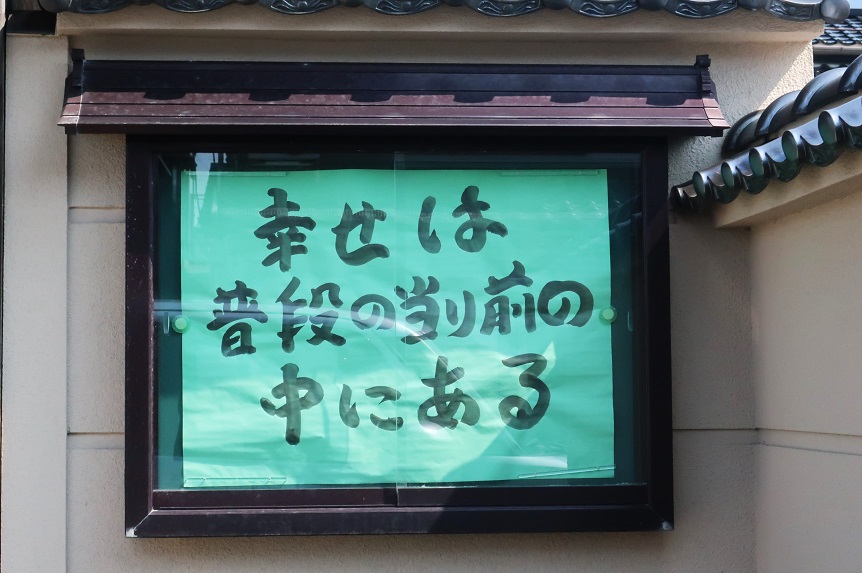 幸せは
普段の当り前の
中にある